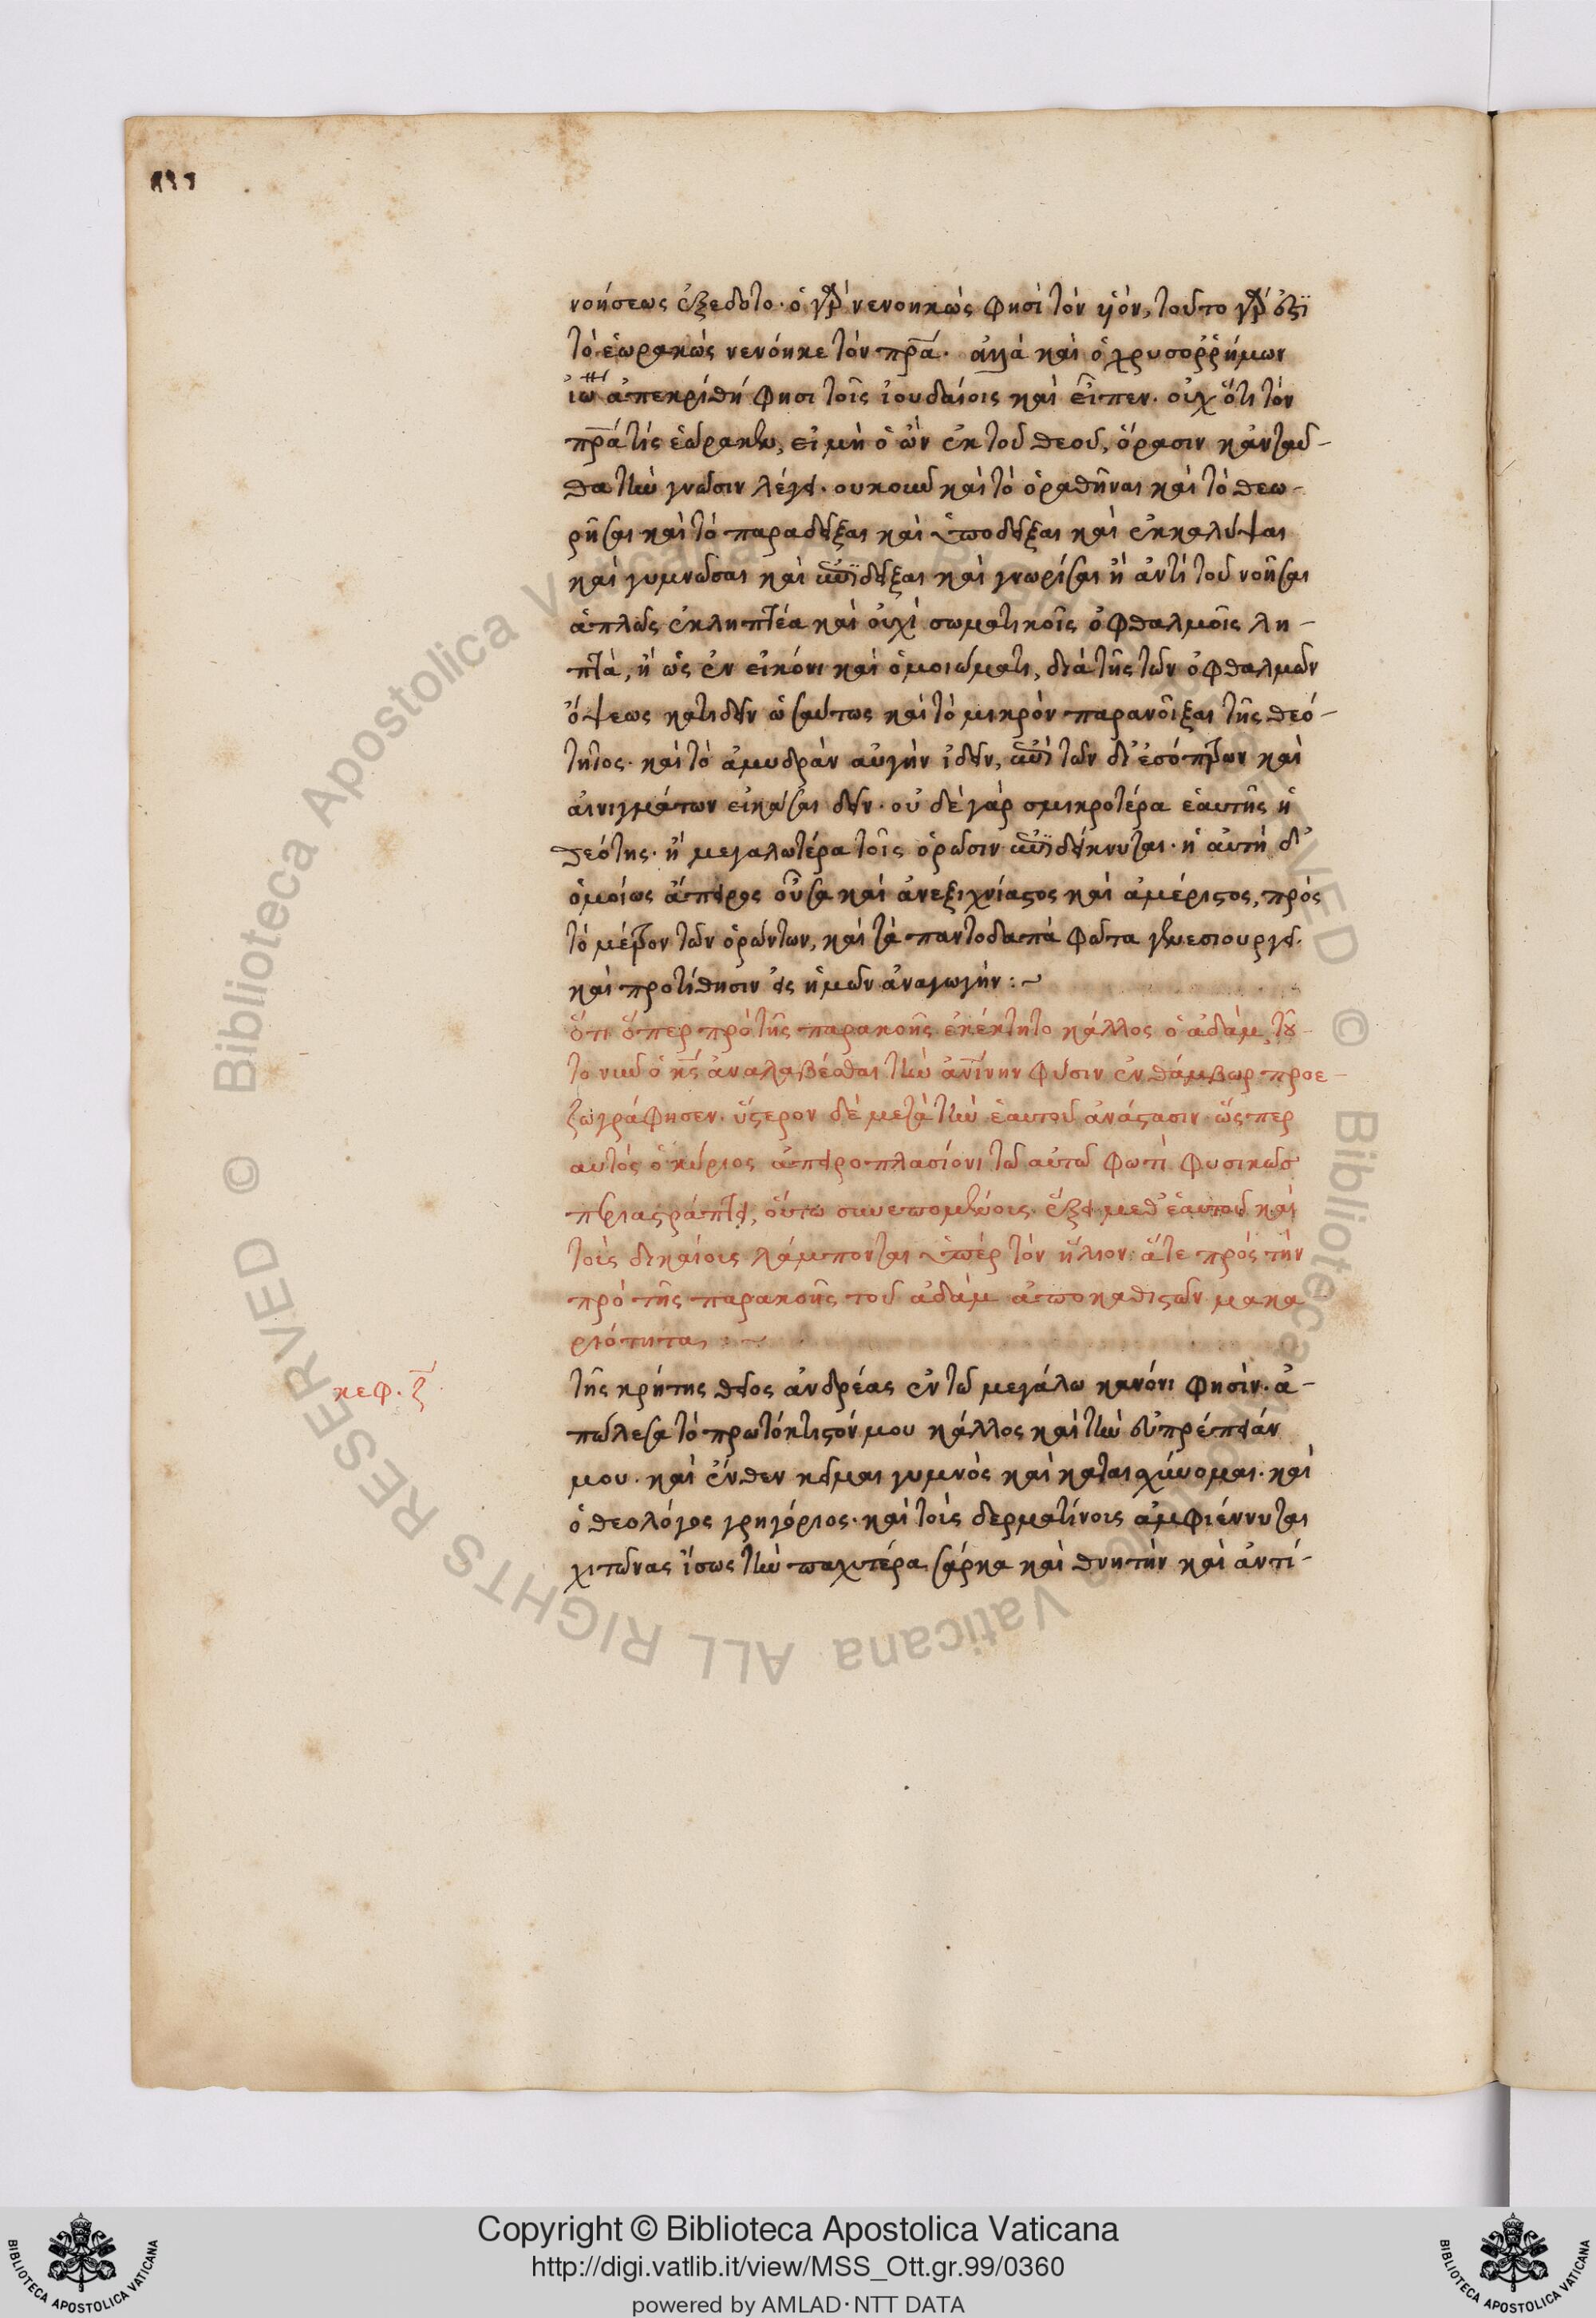 νοήσεως ἐξεδοτο· ὁ γὰρ νενοηκώς φησὶ τὸν υἱόν, τοῦτο γάρ ἐστϊ
τὸ ἑωρακὼς νενόηκε τὸν πρ̅α̅· ἀλλὰ καὶ ὁ χρυσοῤῥήμων
ἰω ἀπεκρίθη φησι τοῖς ἰουδαίοις καὶ εἶπεν· οὐχ ὅτι τὸν
πρ̅α̅ τὶς ἑώρακεν, εἰ μὴ ὁ ὢν ἐκ τοῦ θεοῦ, ὅρασιν κἀνταῦ-
θα τὴν γνῶσιν λέγει· ουκοῦν καὶ τὸ ὁραθῆναι καὶ τὸ θεω-
ρῆσαι καὶ τὸ παραδεῖξαι καὶ ὑποδεῖξαι καὶ ἐκκαλύψαι
καὶ γυμνῶσαι καὶ δεῖξαι καὶ γνωρίσαι ἢ ἀντὶ τοῦ νοῆσαι
ἁπλῶς ἐκληπτέα καὶ οὐχὶ σωματικοῖς ὀφθαλμοῖς λη-
πτὰ, ἢ ὡς ἐν εἰκόνι καὶ ὁμοιώματι, διὰ τῆς τῶν ὀφθαλμῶν
ὄψεως κατιδεῖν ὡσαύτως καὶ τὸ μικρὸν παρανοῖξαι τῆς θεό-
τητος· καὶ τὸ ἀμυδρὰν αὐγὴν ἰδεῖν, ἀντὶ τῶν δι' ἐσόπτρων καὶ
αἰνιγμάτων εἰκάσαι δεῖν· οὐ δὲ γὰρ σμικροτέρα ἑαυτῆς ἡ
θεότης· ἢ μεγαλωτέρα τοῖς ὁρῶσιν δείκνυται· ἡ αὐτὴ δ'
ὁμοίως ἄπειρος οὖσα καὶ ἀνεξιχνίαστος καὶ ἀμέριστος, πρὸς
τὸ μέτρον τῶν ὁρώντων, καὶ τὰ παντοδαπὰ φῶτα γενεσιουργεῖ·
καὶ προτίθησιν εἰς ἡμῶν ἀναγωγήν :~
ὅτι ὅπερ πρὸ τῆς παρακοῆς ἐκέκτητο κάλλος ὁ ἀδὰμ, τοῦ-
το νῦν ὁ κ̅ς̅ ἀναλαβέσθαι τὴν ἀνίνην φύσιν ἐν θάμβωρ προε-
ζωγράφησεν· ὕστερον δὲ μετὰ τὴν ἑαυτοῦ ἀνάστασιν· ὥσπερ
αυτὸς ὁ κύριος ἀπειροπλασίονι τῶ αὐτῶ φωτὶ φυσικῶσ
περιαστράπτει, οὕτω συνεπομένοις ἕξει μεθ' ἑαυτοῦ καὶ
τοὺς δικαίους λάμποντας ὑπὲρ τὸν ἥλιον· ἅτε πρὸς τὴν
πρὸ τῆς παρακοῆς τοῦ ἀδὰμ ἀποκαθιστῶν μακα
ριότητα :~
κεφ. ζ
τῆς κρήτης θεῖος ἀνδρέας ἐν τῶ μεγάλω κανόνι φησὶν· ἀ-
πώλεσα τὸ πρωτόκτιστόν μου κάλλος καὶ τὴν εὐπρέπειάν
μου· καὶ ἔνθεν κεῖμαι γυμνὸς καὶ καταισχύνομαι· καὶ
ὁ θεολόγος γρηγόριος· καὶ τοὺς δερματίνους ἀμφιέννυται
χιτῶνας ἴσως τὴν παχυτέρα σάρκα καὶ θνητὴν καὶ ἀντί-
Copyright © Biblioteca Apostolica Vaticana
http://digi.vatlib.it/view/MSS_Ott.gr.99/0360
powered by AMLAD·NTT DATA
BIBLIOTECA APOSTOLICA VATICANA
BIBLIOTECA APOSTOLICA VATICANA
© Biblioteca Apostolica Vaticana ALL RIGHTS RESERVED